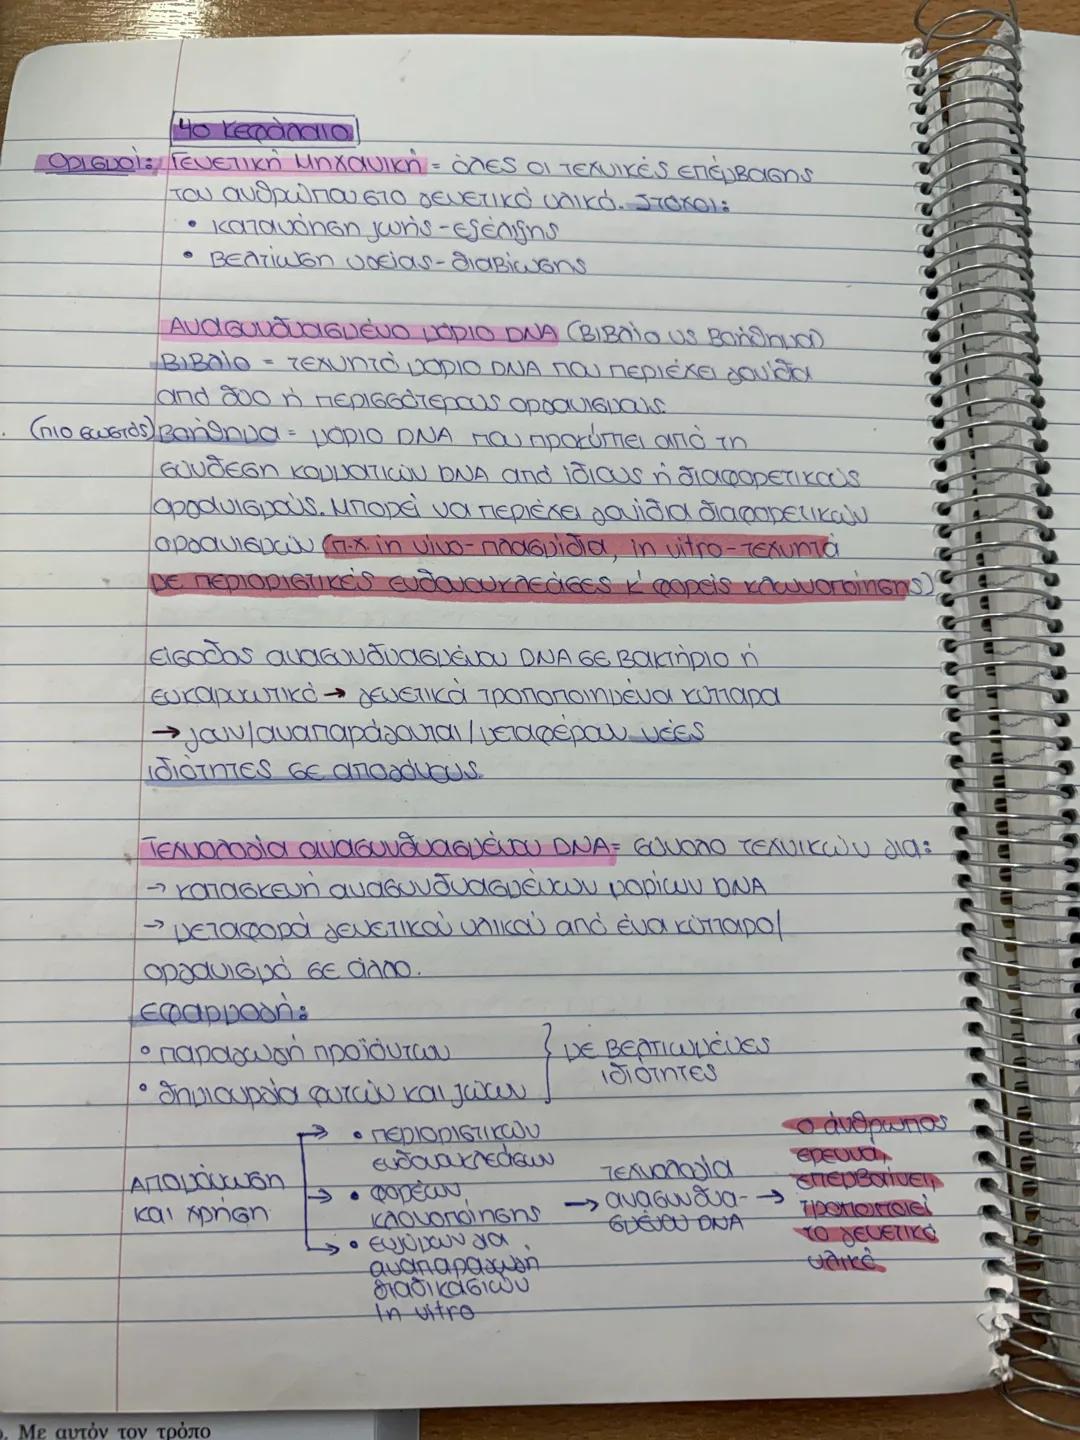 4ο Κεφάλαιο
Ορισμοί: Γενετική Μηχανική = όλες οι τεχνικές επέμβασης
του ανθρώπου στο γενετικό υλικό. Στόχοι:
• κατανόηση ζωής-εξέλιξης
• βελτίωση υγείας-διαβίωσης
Ανασυνδυασμένο μόριο DNA (Βιβλίο vs Βοήθημα)
Βιβλίο = τεχνητό μόριο DNA που περιέχει γονίδια
από δύο ή περισσότερους οργανισμούς.
(πιο σωστός) Βοήθημα = μόριο DNA που προκύπτει από τη
σύνδεση κομματιών DNA από ίδιους ή διαφορετικούς
οργανισμούς. Μπορεί να περιέχει γονίδια διαφορετικών
οργανισμών (π.χ in vivo-πλασμίδια, in vitro-τεχνητά
με περιοριστικές ενδονουκλεάσες κ' φορείς κλωνοποίησης)
είσοδος ανασυνδυασμένου DNA σε βακτήριο ή
ευκαρυωτικό → γενετικά τροποποιημένα κύτταρα
→ ζουν/αναπαράγονται/μεταφέρουν νέες
ιδιότητες σε απογόνους.
Τεχνολογία ανασυνδυασμένου DNA = σύνολο τεχνικών για:
→ κατασκευή ανασυνδυασμένων μορίων DNA
→ μεταφορά γενετικού υλικού από ένα κύτταρο/
οργανισμό σε άλλο.
Εφαρμογή:
• παραγωγή προϊόντων } με βελτιωμένες
• δημιουργία φυτών και ζώων ιδιότητες
Απομόνωση
και χρήση
→ • περιοριστικών
ενδονουκλεασών
→ • φορέων
κλωνοποίησης
→ • ενζύμων για
αναπαραγωγή
διαδικασιών
in vitro
→ τεχνολογία
ανασυνδυα-
σμένου DNA
→ ο άνθρωπος
ερευνά,
επεμβαίνει,
τροποποιεί
το γενετικό
υλικό
. Με αυτόν τον τρόπο